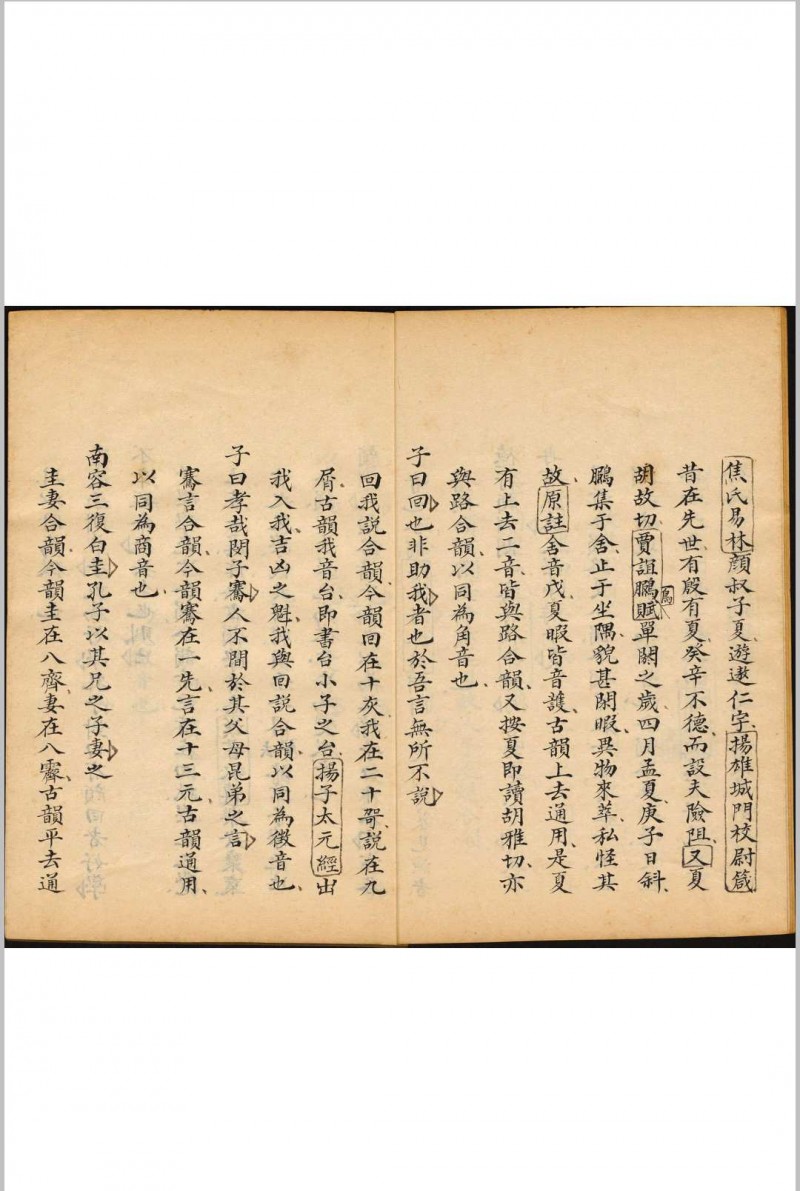 焦氏易林顔叔子夏遊遨仁宇揚雄城門校尉箴
昔在先世有殷有夏癸辛不德而設夫險阻又夏
胡故切賈誼鵩賦單閼之歲四月孟夏庚子日斜
鵩集于舍止于坐隅貌甚閒暇異物來萃私怪其
故原註舍音戍夏暇皆音護古韻上去通用是夏
有上去二音皆與路合韻又按夏即讀胡雅切亦
與路合韻以同為角音也
子曰回也非助我者也於吾言無所不說
回我說合韻今韻回在十灰我在二十哿說在九
屑古韻我音台即書台小子之台揚子太元經出
我入我吉凶之魁我與回說合韻以同為徵音也
子曰孝哉閔子騫人不間於其父母昆弟之言
騫言合韻今韻騫在一先言在十三元古韻通用
以同為商音也
南容三復白圭孔子以其兄之子妻之
圭妻合韻今韻圭在八齊妻在八霽古韻平去通